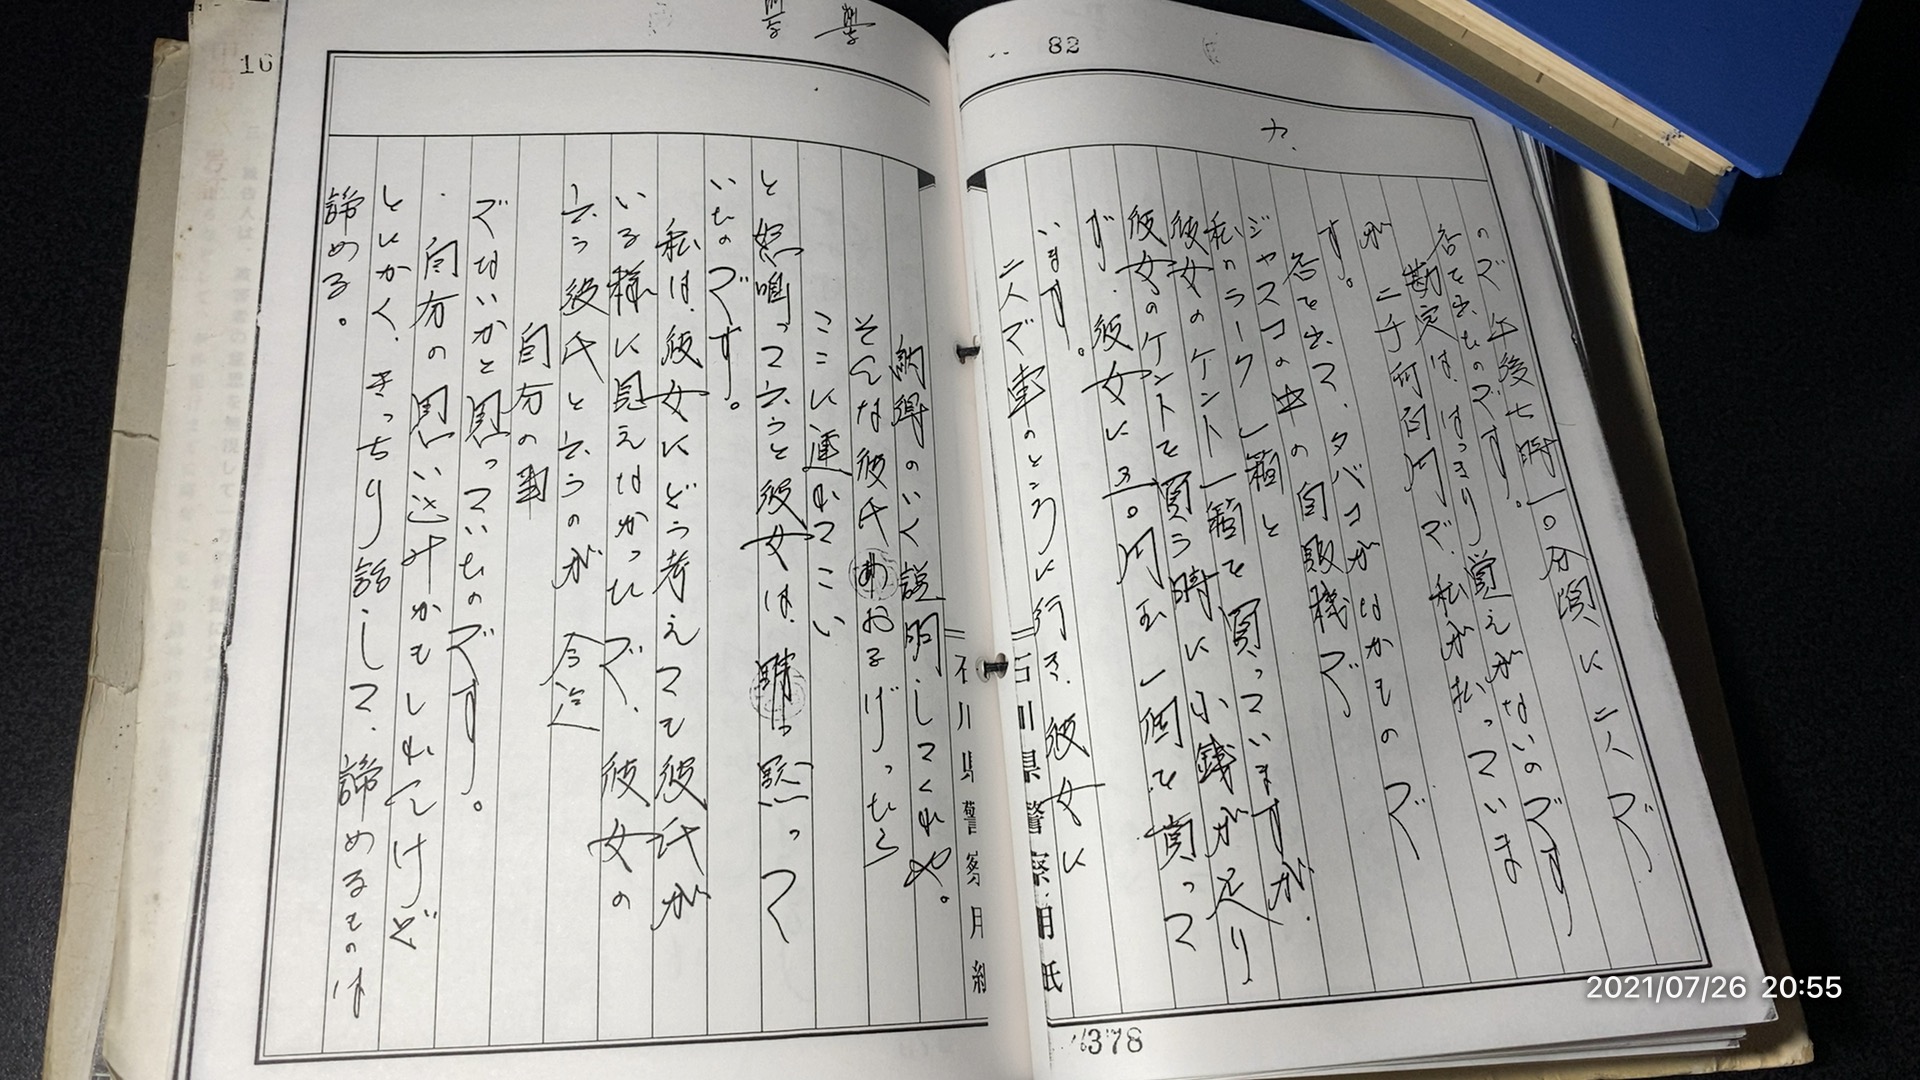 82
カ.
ので午後七時一〇分頃に二人で
舎を出たのです。
勘定は、はっきり覚えがないのです
が二千何百円で、私が払っていま
す。
舎を出て、タバコがなかもので
ジャスコの中の自販機で
私のラーク一箱と
彼女のケント一箱を買っていますが、
彼女のケントを買う時に小銭が足り
ず、彼女に
円玉一個を貰って
います。
二人で車のところに行き、彼女に
石川県警察用紙
378
16
納得のいく説明してくれや。
そんな彼氏おるげったら
ここに連れてこい
と怒鳴って云うと彼女は、黙って
いたのです。
私は、彼女にどう考えても彼氏が
いる様に見えなかったので、彼女の
云う彼氏と云うのが今迄
自分の事
でないかと思っていたのです。
自分の思い込みかもしれんけど
とにかく、きっちり話しして、諦めるものは
諦める。
石川県警察用紙
2021/07/26 20:55